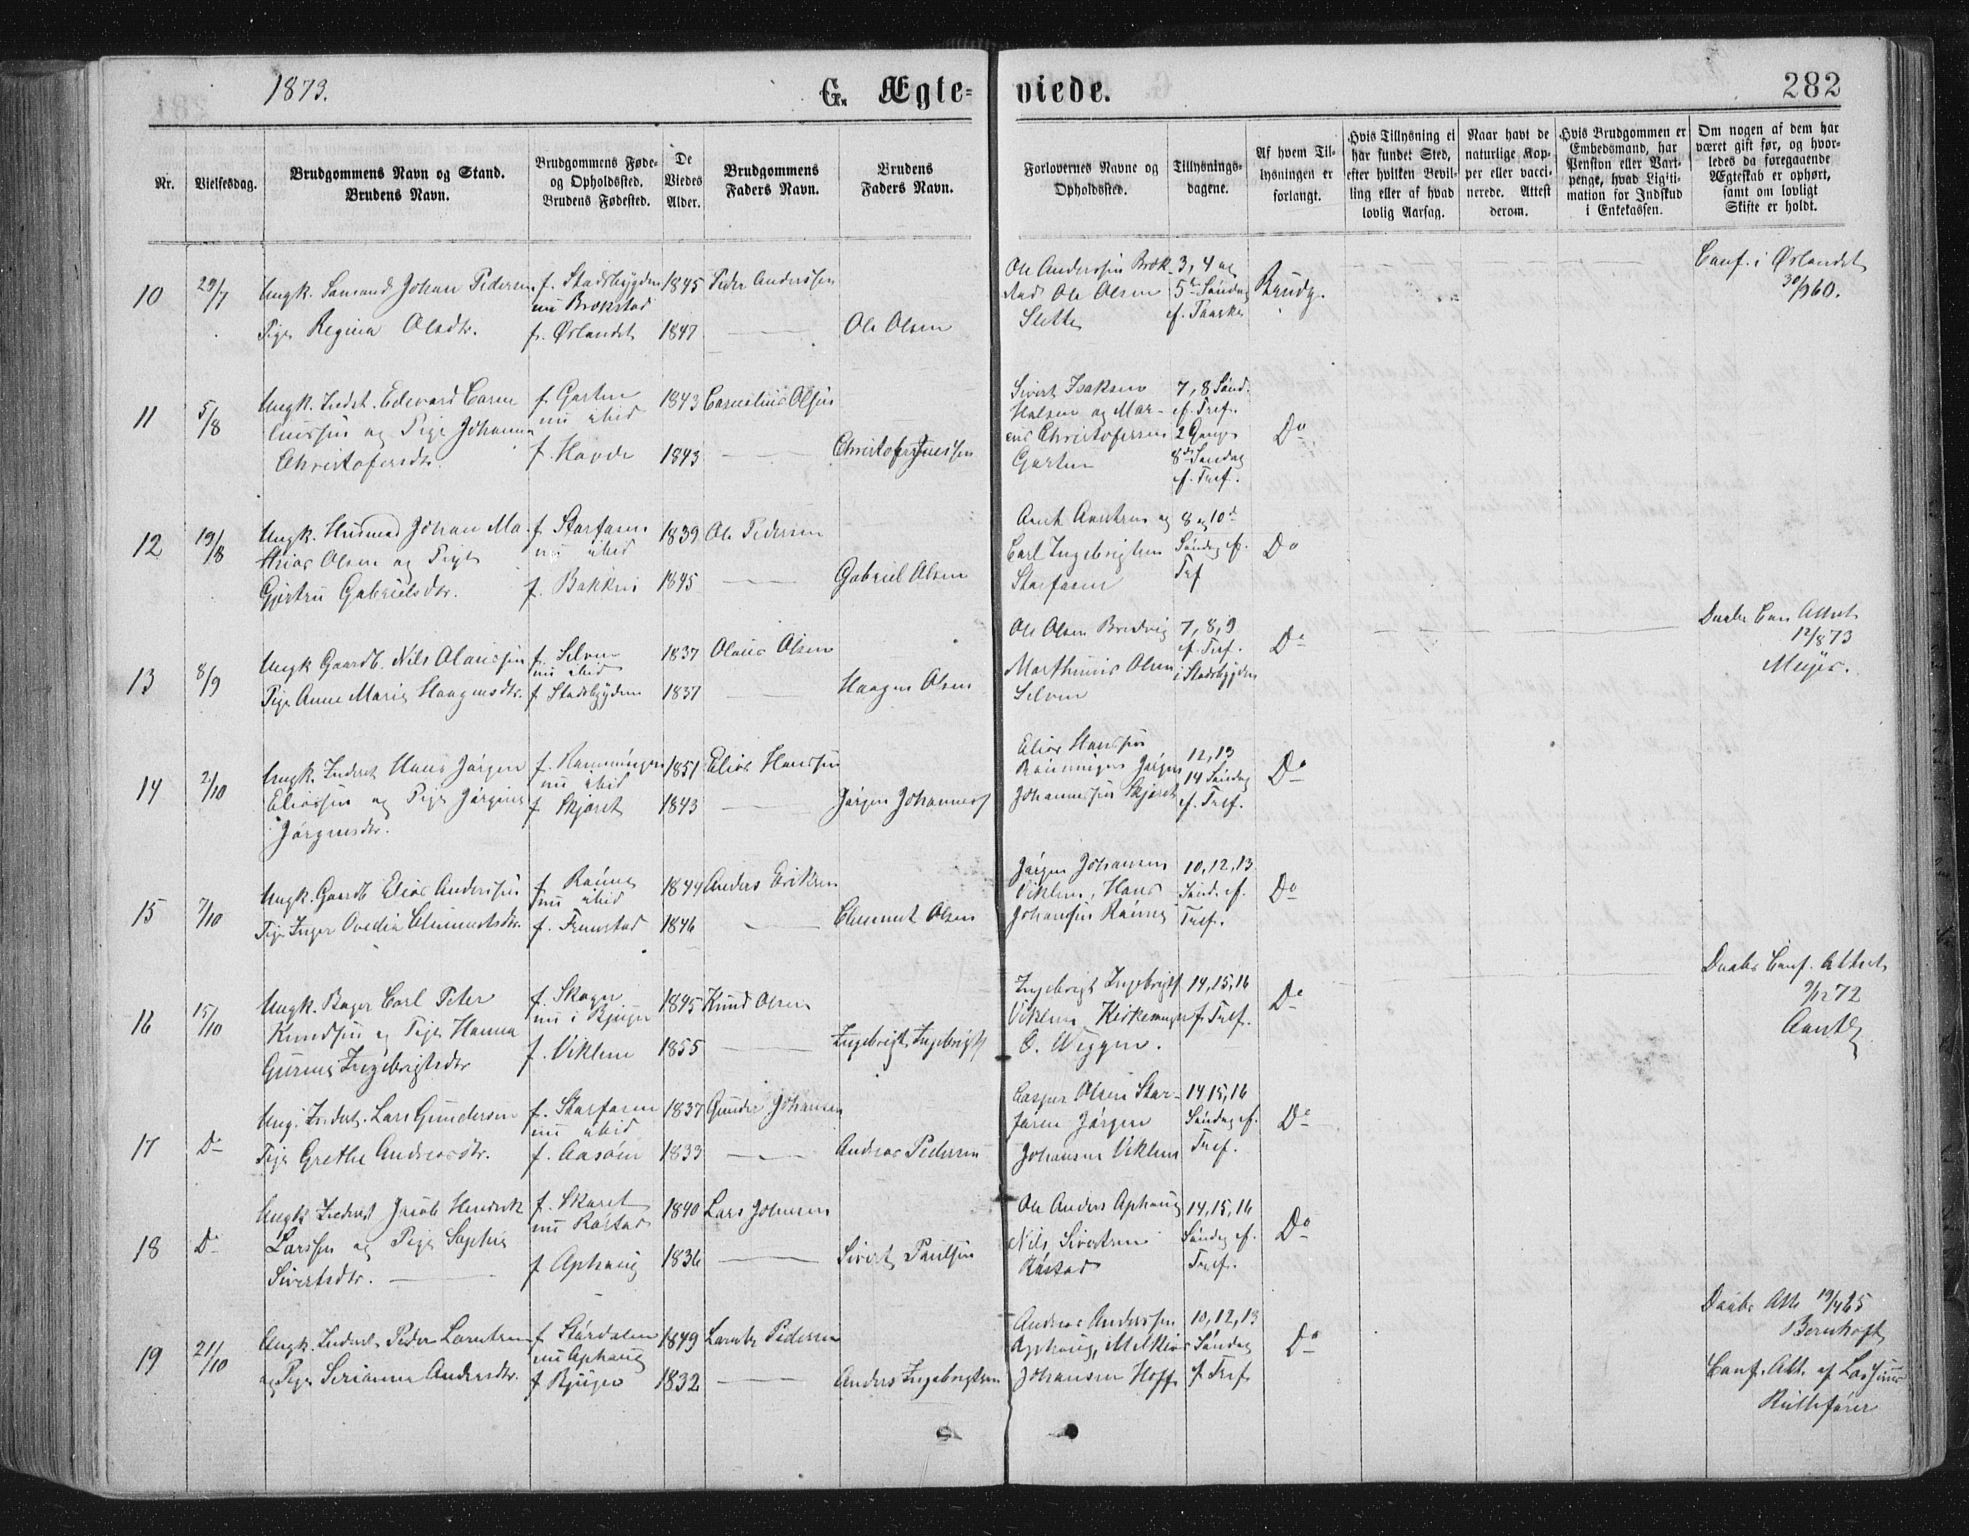 1873.
G. Ægte-
viede.
282
Nr.
Vielsesdag.
Brudgommens Navn og Stand.
Brudens Navn.
Brudgommens Føde-
og Opholdssted.
Brudens Fødested.
De
Viedes
Alder.
Brudgommens
Faders Navn.
Brudens
Faders Navn.
Forlovernes Navne og
Opholdssted.
Tillysnings-
dagene.
Af hvem Til-
lysningen er
forlangt.
Hvis Tillysning ei
har fundet Sted,
efter hvilken Bevil-
ling eller af hvad
lovlig Aarsag.
Naar havt de
naturlige Kop-
per eller vacci-
nerede. Attest
derom.
Hvis Brudgommen er
Embedsmand, har
Pension eller Vart-
penge, hvad Legiti-
mation for Indskud
i Enkekassen.
Om nogen af dem har
været gift før, og hvor-
ledes da foregaaende
Ægteskab er ophørt,
samt om lovligt
Skifte er holdt.
10
29/7
Ungk. Johan Pedersen
Pige Regina Olsdtr.
f. Stadsbygden
nu Brekstad
f. Ørlandet
1845
1847
Peder Anderssen
Ole Olsen
Ole Anderssen Brek-
stad Ole Olsen
Slette
3, 4 og
5te Søndag
ef. Paaske
Brudg.
Conf. i Ørlandet
30/9 60.
11
5/8
Ungk. Inderst. Edevard Corne-
liussen og Pige Johanna
Christofersdtr.
f. Garten
nu ibid
f. Hovde
1843
1843
Cornelius Olsen
Christofer Jenssen
Sivert Isaksen
Halsen og Mar-
Christofersen
Garten
7, 8 Sønd.
ef. Tref.
2 Gange
8de Søndag
ef. Tref.
Do
12
19/8
Ungk. Husmand Johan Ma-
thias Olsen og Pige
Gjertru Gabrielsdtr.
f. Storfosen
nu ibid
f. Bakken
1839
1845
Ole Pedersen
Gabriel Olsen
Arnt Arntsen og
Carl Ingebrigtsen
Storfosen
8 og 10de
Søndag ef.
Tref
Do
13
8/9
Ungk Gaardb. Nils Olaussen
Pige Anne Maria Haagensdtr.
f. Selven
nu ibid
f Stadsbygden
1837
1837
Olaus Olsen
Haagen Olsen
Ole Olsen Bredvig
Marthinus Olsen
Selven
7, 8, 9
ef. Tref.
i Stadsbygden
Do
Daabs Conf Attest
12/8 73
Meyer.
14
2/10
Ungk. Inderst Hans Jørgen
Eliassen og Pige Jørgine
Jørgensdtr.
nu ibid
f Skjøret
1851
1843
Elias Hanssen
Jørgen Johannes
Elias Hanssen
Jørgen
Johannessen Skjøret
12, 13
14 Søndag
ef. Tref.
Do
15
7/10
Ungk. Gaardb Elias Anderssen
Pige Inger Ovedia Clemmetsdtr.
nu ibid
1844
1846
Anders Eriksen
Clemmet Olsen
Jørgen Johansen
Viklem, Hans
10, 12, 13
Sønd. ef.
Tref.
Do
16
15/10
Ungk. Bager Carl Peter
Knudsen og Pige Hanna
Gurine Ingebrigtsdtr
nu i Bjugn
f. Viklem
1845
1855
Knud Olsen
Ingebrigt Ingebrigts
Ingebrigt Ingebrigts
Viklem Kirkesanger
O. Wiggen.
14, 15, 16
f. Tref.
Do
Daabs Conf. Attest
9/12 72
17
Do
Ung. Inderst. Lars Gundersen
Pige Grethe Andreasdtr.
f. Storfosen
nu ibid
f. Aasøen
1837
1833
Gunder Johansen
Andreas Pedersen
Casper Olsen Stor-
fosen Jørgen
Johansen Viklem
14 15, 16
Søndag ef.
Tref.
Do
18
Do
Ungk Inderst Jacob Hendrik
Larssen og Pige Sophia
Sivertsdtr.
nu Røstad
f Ophaug
1840
1836
Lars Johnsen
Sivert Paulsen
Ole Anders Ophaug
Nils Sivertsen
Røstad
14, 15, 16
Søndag ef.
Tref.
Do
19
21/10
Ungk. Inderst. Peder Lorentsen
og Pige Serianna Andersdtr.
f Størdalen
nu Ophaug
f Bjugn
1849
1832
Lorents Pedersen
Anders Ingebrigtsen
Andreas Anderssen
Ophaug, Melkior
Johansen Hoff
10, 12, 13
Søndag
f. Tref
Do
Daabs Att. 19/4 65
Bernhoft